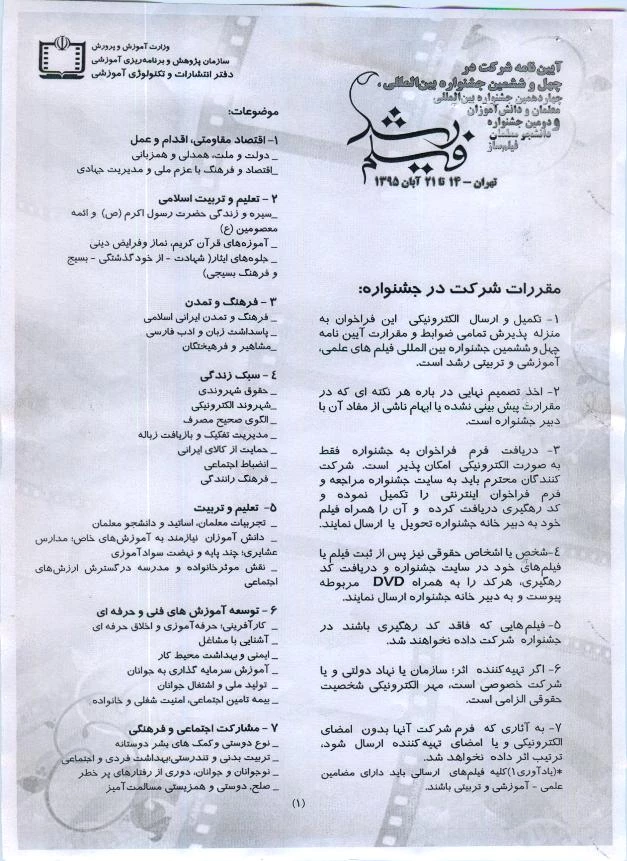 آیین نامه شرکت در
چهل و ششمین جشنواره بین‌المللی،
چهاردهمین جشنواره بین‌المللی
معلمان و دانش‌آموزان
و دومین جشنواره
دانشجو معلمان
فیلم‌ساز
فیلم رشد
تهران - ۱۴ تا ۲۱ آبان ۱۳۹۵
مقررات شرکت در جشنواره:
۱- تکمیل و ارسال الکترونیکی این فراخوان به
منزله پذیرش تمامی ضوابط و مقرارت آیین نامه
چهل و ششمین جشنواره بین المللی فیلم های علمی،
آموزشی و تربیتی رشد است.
۲- اخذ تصمیم نهایی در باره هر نکته ای که در
مقرارت پیش بینی نشده یا ابهام ناشی از مفاد آن با
دبیر جشنواره است.
۳- دریافت فرم فراخوان به جشنواره فقط
به صورت الکترونیکی امکان پذیر است. شرکت
کنندگان محترم باید به سایت جشنواره مراجعه و
فرم فراخوان اینترنتی را تکمیل نموده و
کد رهگیری دریافت کرده و آن را همراه فیلم
خود به دبیر خانه جشنواره تحویل یا ارسال نمایند.
۴-شخص یا اشخاص حقوقی نیز پس از ثبت فیلم یا
فیلم‌های خود در سایت جشنواره و دریافت کد
رهگیری، هرکد را به همراه DVD مربوطه
پیوست و به دبیر خانه جشنواره ارسال نمایند.
۵- فیلم‌هایی که فاقد کد رهگیری باشند در
جشنواره شرکت داده نخواهند شد.
۶- اگر تهیه‌کننده اثر؛ سازمان یا نهاد دولتی و یا
شرکت خصوصی است، مهر الکترونیکی شخصیت
حقوقی الزامی است.
۷- به آثاری که فرم شرکت آنها بدون امضای
الکترونیکی و یا امضای تهیه کننده ارسال شود،
ترتیب اثر داده نخواهد شد.
*(یادآوری۱)کلیه فیلم‌های ارسالی باید دارای مضامین
علمی - آموزشی و تربیتی باشند.
وزارت آموزش و پرورش
سازمان پژوهش و برنامه‌ریزی آموزشی
دفتر انتشارات و تکنولوژی آموزشی
موضوعات:
۱- اقتصاد مقاومتی، اقدام و عمل
_ دولت و ملت، همدلی و همزبانی
_اقتصاد و فرهنگ با عزم ملی و مدیریت جهادی
۲ - تعلیم و تربیت اسلامی
_سیره و زندگی حضرت رسول اکرم (ص) و ائمه
معصومین (ع)
_ آموزه‌های قرآن کریم، نماز وفرایض دینی
_ جلوه‌های ایثار( شهادت - از خود گذشتگی - بسیج
و فرهنگ بسیجی)
۳ - فرهنگ و تمدن
_ فرهنگ و تمدن ایرانی اسلامی
_ پاسداشت زبان و ادب فارسی
_مشاهیر و فرهیختگان
۴ - سبک زندگی
_ حقوق شهروندی
_شهروند الکترونیکی
_ الگوی صحیح مصرف
_ مدیریت تفکیک و بازیافت زباله
_ حمایت از کالای ایرانی
_ انضباط اجتماعی
_ فرهنگ رانندگی
۵- تعلیم و تربیت
_ تجربیات معلمان، اساتید و دانشجو معلمان
_ دانش آموزان نیازمند به آموزش‌های خاص؛ مدارس
عشایری؛ چند پایه و نهضت سوادآموزی
_ نقش موثرخانواده و مدرسه درگسترش ارزش‌های
اجتماعی
۶ - توسعه آموزش های فنی و حرفه ای
_ کارآفرینی؛ حرفه‌آموزی و اخلاق حرفه ای
_ آشنایی با مشاغل
_ ایمنی و بهداشت محیط کار
_ آموزش سرمایه گذاری به جوانان
_ تولید ملی و اشتغال جوانان
_ بیمه تامین اجتماعی، امنیت شغلی و خانواده
۷ - مشارکت اجتماعی و فرهنگی
_ نوع دوستی وکمک های بشر دوستانه
_ تربیت بدنی و تندرستی،بهداشت فردی و اجتماعی
_ نوجوانان و جوانان، دوری از رفتارهای پر خطر
_ صلح، دوستی و همزیستی مسالمت‌آمیز
(۱)